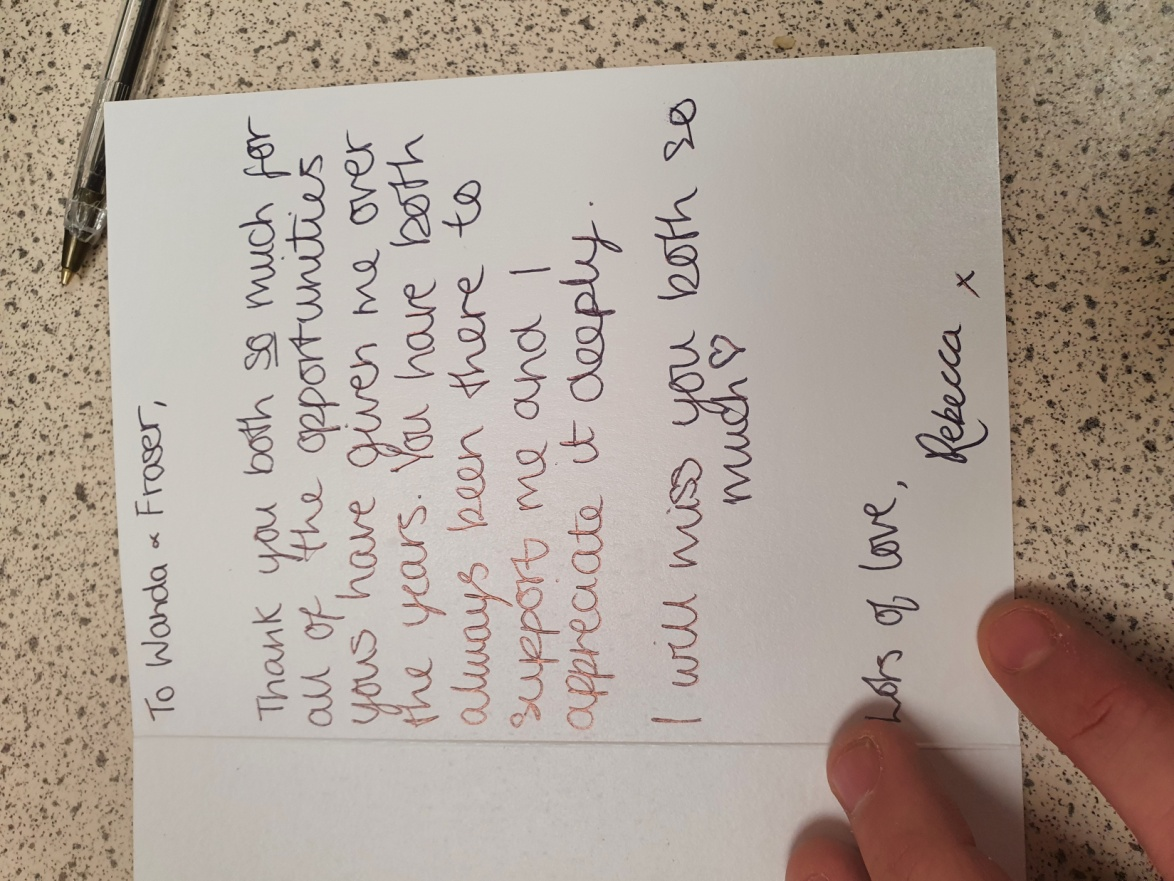 To Wanda & Fraser,
Thank you both so much for
all of the opportunities
yous have given me over
the years. You have both
always been there to
support me and I
appreciate it deeply.
I will miss you both so
much ♡
Lots of love,
Rebecca x